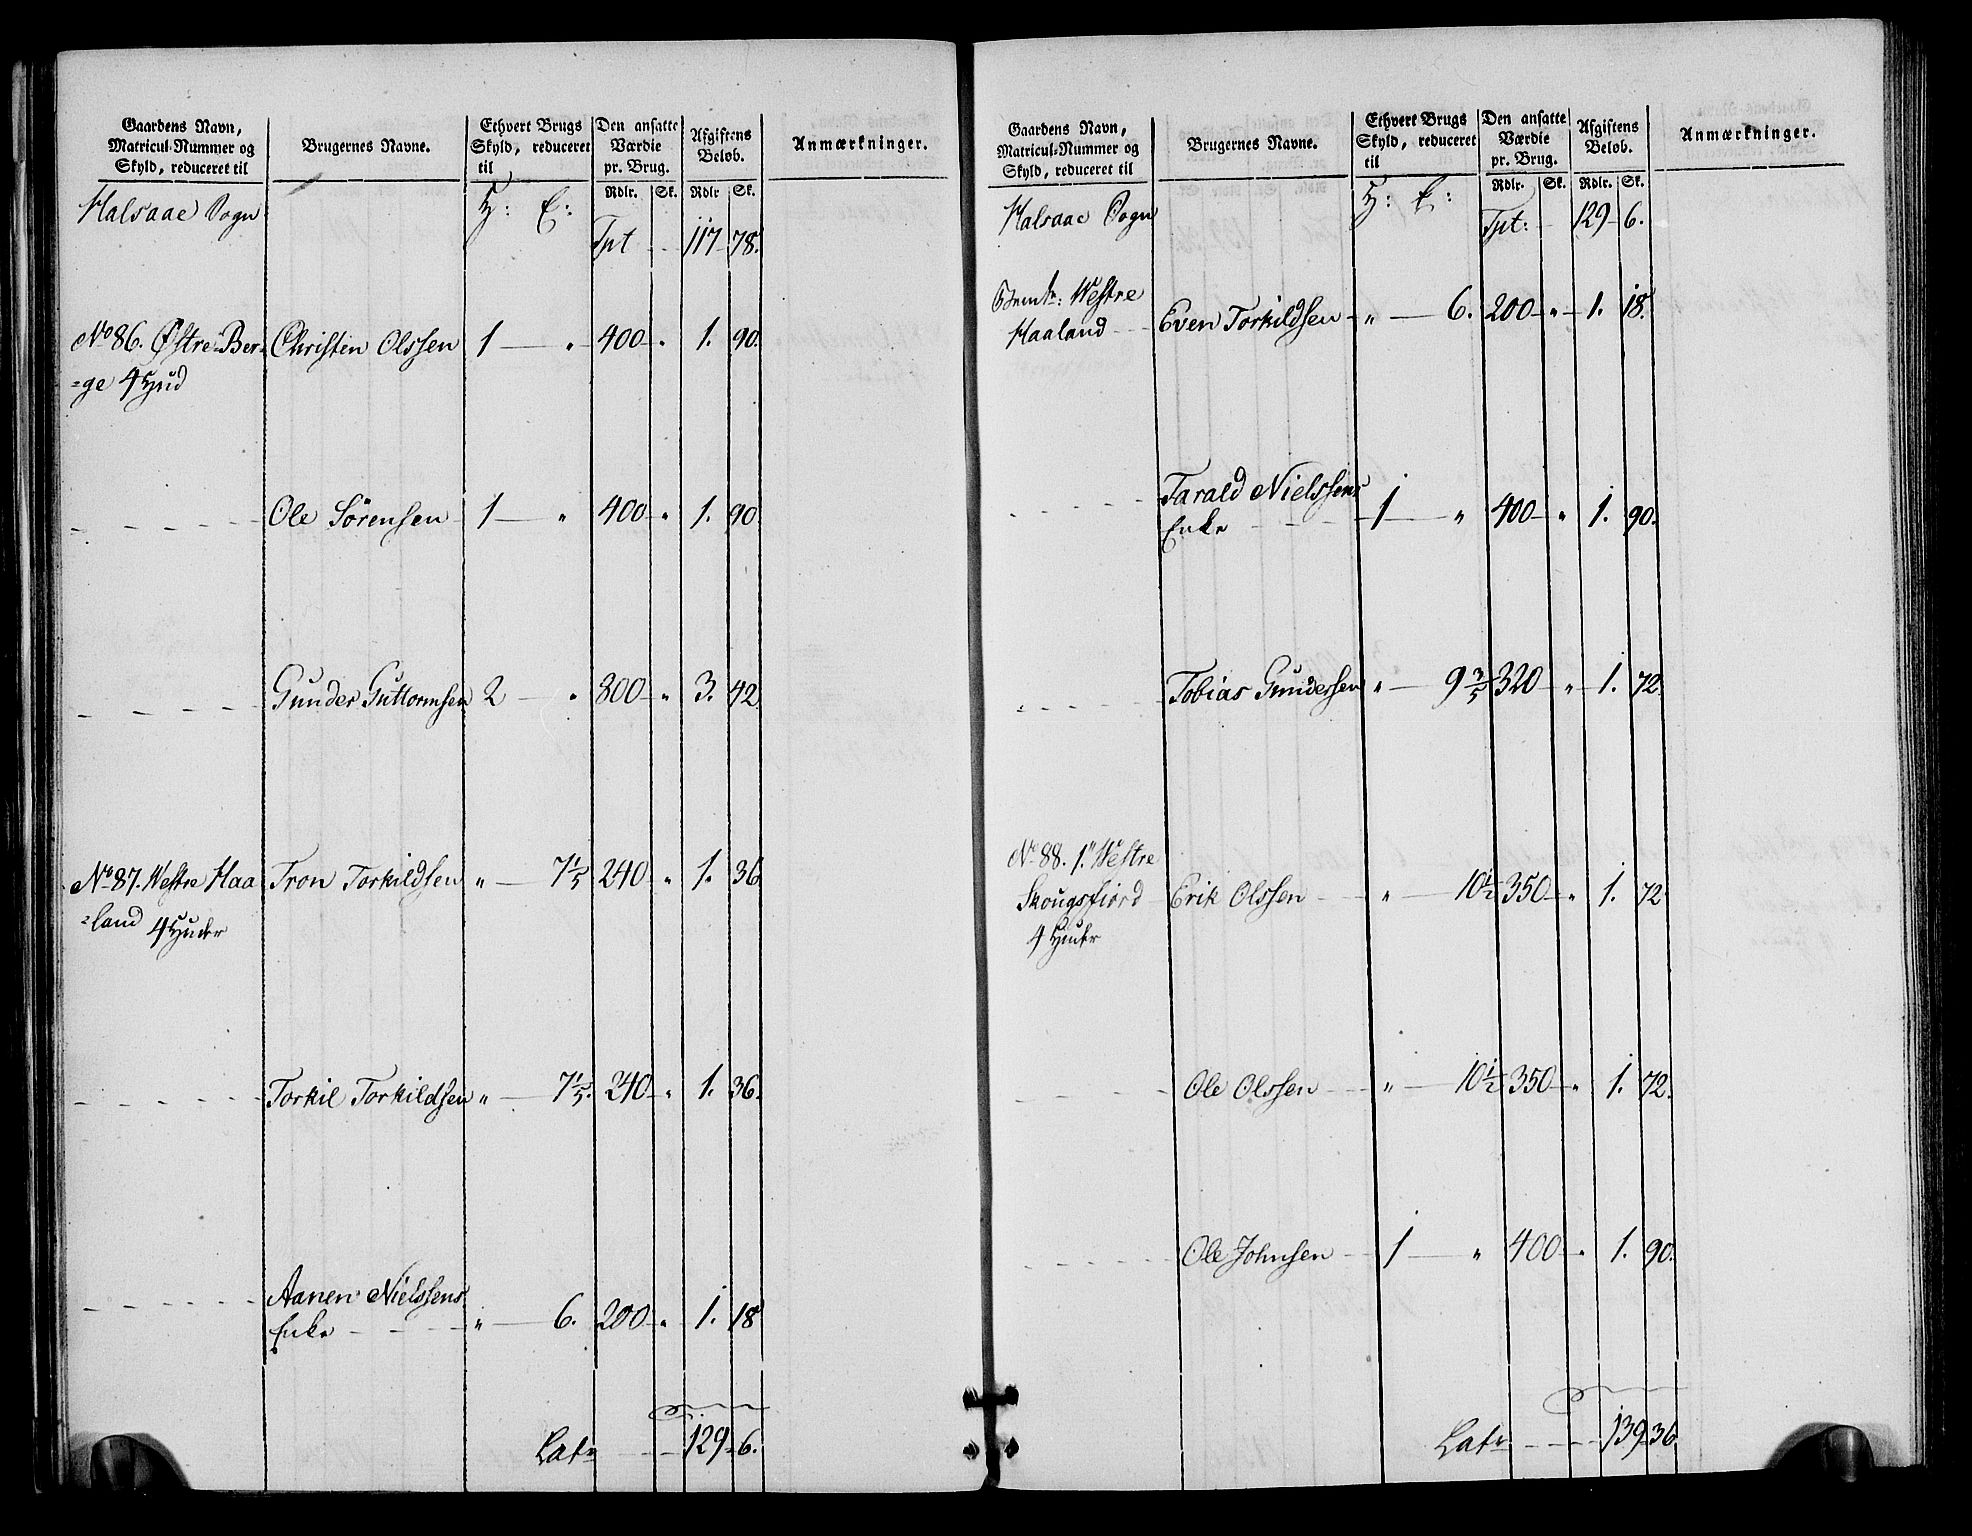 Gaardens Navn,
Matricul-Nummer og
Skyld, reduceret til
Brugernes Navne.
Ethvert Brugs
Skyld, reduceret
til
Den ansatte
Værdie
pr. Brug.
Afgiftens
Beløb.
Anmærkninger.
Rdlr. Sk. Rdlr Sk.
Halsaae Sogn H: E:
Tpt - - 117 - 78.
No 86. Østre Ber- Christen Olssen 1 — " 400 - " 1. 90.
=ge 4 Hud
Ole Sörensen 1 — " 400 - " 1. 90
Gunder Guttormsen 2 — " 800 - " 3. 42
No 87. Westre Haa Tron Torkildsen " — 7 1/5 240 " 1. 36
=land 4 Huder
Torkil Torkildsen " — 7 1/5. 240 - " 1. 36.
Aanen Nielssens
Enke - - - " — 6. 200 - " 1. 18
Latr - - 129 - 6.
Gaardens Navn,
Matricul-Nummer og
Skyld, reduceret til
Brugernes Navne.
Ethvert Brugs
Skyld, reduceret
til
Den ansatte
Værdie
pr. Brug.
Afgiftens
Beløb.
Anmærkninger.
Rdlr. Sk. Rdlr. Sk.
Halsaae Sogn H: E:
Tpt: - 129 - 6.
Westre
Haaland - - Even Torkildsen - " — 6. 200 - " - 1. 18.
Tarald Nielssens
Enke - - - 1 — " 400 - " 1. 90.
Tobias Gundersen " — 9 3/5 320 - " - 1. 72
No 88. 1." Westre
Skougsfiord Erik Olssen - - " — 10 1/2 350 - " 1. 72
4 Huder
Ole Olssen - - " — 10 1/2 350 - " 1. 72.
Ole Johnsen - 1 — " 400 - " 1. 90.
Latr - - - 139 - 36